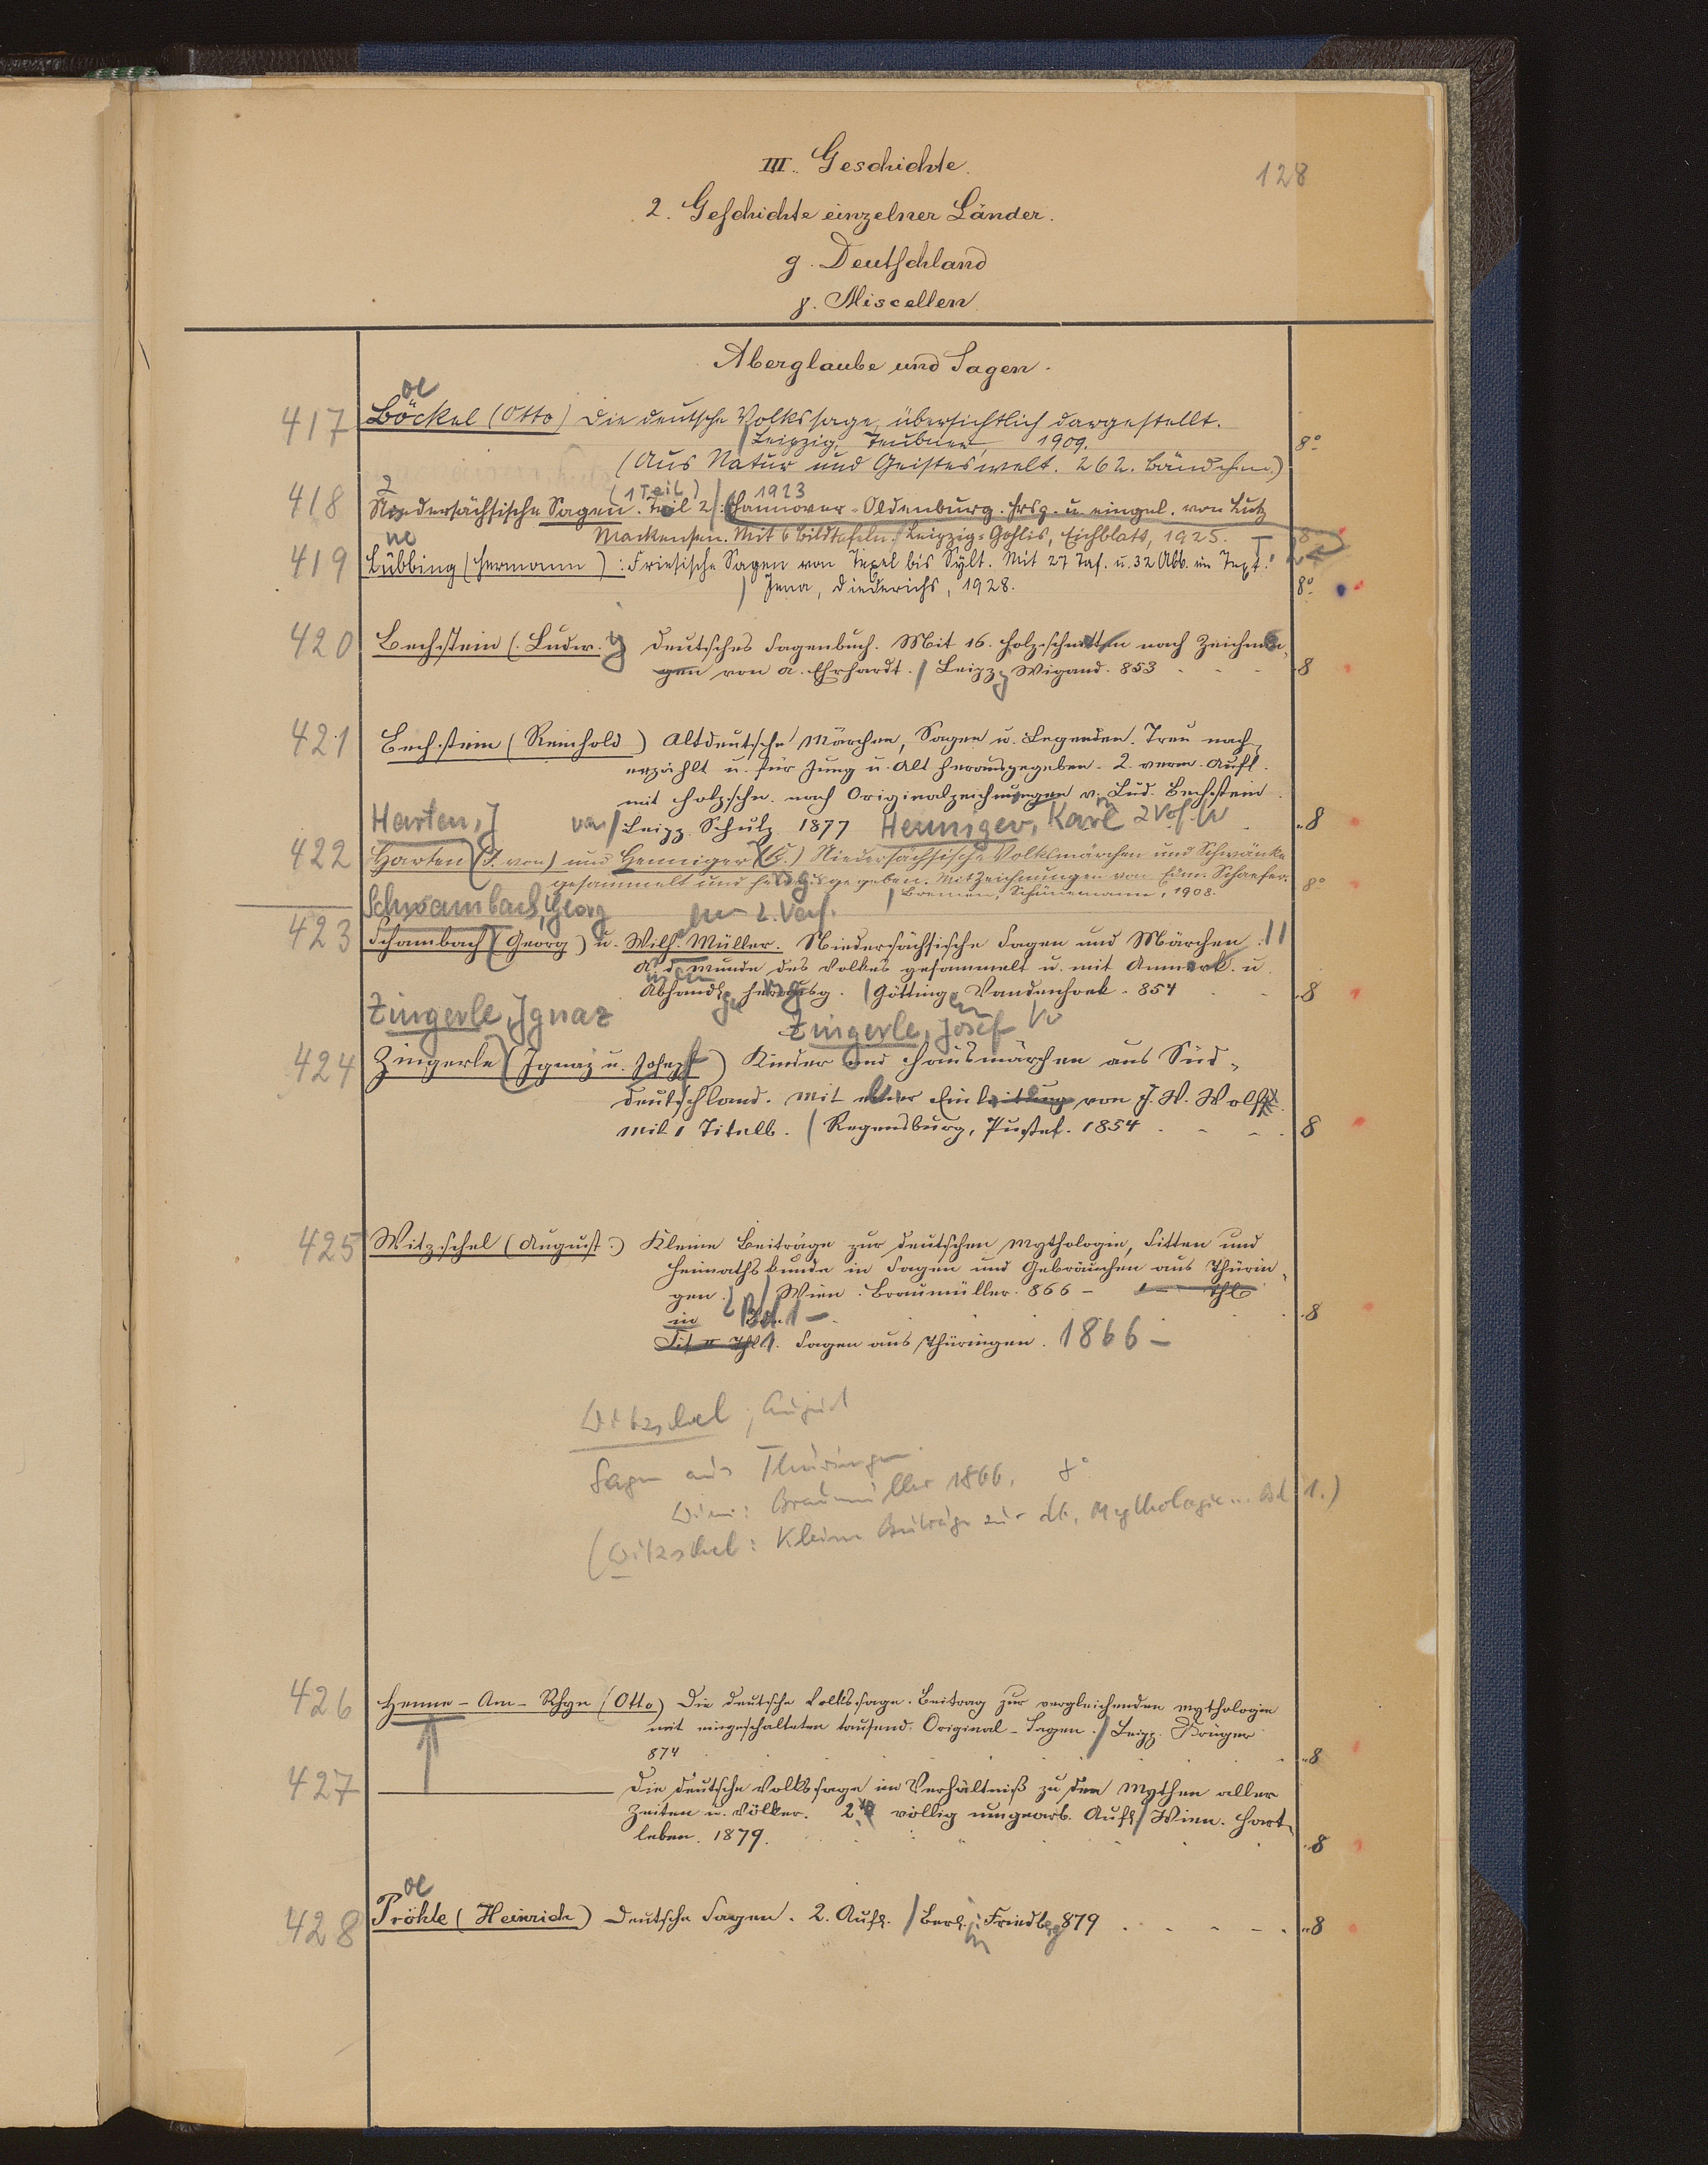 III. Geschichte.
128
2. Geschichte einzelner Länder.
g. Deutschland
γ. Miscellen
Aberglaube und Sagen.
oe
417 Böckel (Otto) Die deutsche Volkssage, übersichtlich dargestellt.
Leipzig, Teubner, 1909. 8°
(Aus Natur und Geisteswelt. 262. Bändchen.)
(1 Teil) 1923
418 Niedersächsische Sagen. Teil 2: Hannover-Oldenburg. Hrsg. u. eingel. von Lutz
Mackensen. Mit 6 Bildtafeln. Leipzig-Gohlis, Eichblatt, 1925. 8
ue
419 Lübbing (Hermann): Friesische Sagen von Texel bis Sylt. Mit 27 Taf. u. 32 Abb. im Text.
Jena, Diederichs, 1928. 8°
420 Bechstein (Ludw.) Deutsches Sagenbuch. Mit 16 Holzschnitten nach Zeichnun-
gen von A. Ehrhardt. / Leipz. Wigand. 853 8
421 Bechstein (Reinhold) Altdeutsche Märchen, Sagen u. Legenden. Treu nach-
erzählt u. für Jung u. Alt herausgegeben. 2. verm. Aufl.
mit Holzschn. nach Originalzeichnungen v. Lud. Bechstein.
Leipz. Schulz 1877 8
Harten, J von Henniger, Karl 2 Verf.
422 Harten (J. von) und Henniger (K.) Niedersächsische Volksmärchen und Schwänke
gesammelt und herausgegeben. Mit Zeichnungen von Hinr. Schaefer.
Bremen, Schünemann, 1908. 8°
Schwambach, Georg 2. Verf.
423 Schambach (Georg) u. Wilh. Müller. Niedersächsische Sagen und Märchen.
A. d. Munde des Volkes gesammelt u. mit Anmerk. u.
Abhandl. herausg. / Götting. Vandenhoek. 854 8
Zingerle, Ignaz Zingerle, Josef
424 Zingerle (Ignaz u. Joseph) Kinder und Hausmärchen aus Süd-
deutschland. Mit einer Einleitung von J. W. Wolf.
Mit 1 Titelb. / Regensburg, Pustet. 1854 8
425 Witzschel (August.) Kleine Beiträge zur deutschen Mythologie, Sitten und
Heimathskunde in Sagen und Gebräuchen aus Thürin-
gen. / Wien. Braumüller. 866 - Thle
in Bd. 1 - 8
1. Sagen aus Thüringen. 1866 -
Witzschel, August
Sagen aus Thüringen.
Wien: Braumüller 1866. 8°
(Witzschel: Kleine Beiträge zur dt. Mythologie ... Bd 1.)
426 Henne-Am-Rhyn (Otto) Die deutsche Volkssage. Beitrag zur vergleichenden Mythologie
mit eingeschalteten tausend Original-Sagen. / Leipz. Krüger
874 8
427 Die deutsche Volkssage im Verhältniß zu den Mythen aller
Zeiten u. Völker. 2te völlig umgearb. Aufl. / Wien. Hart-
leben. 1879. 8
oe
428 Pröhle (Heinrich) Deutsche Sagen. 2. Aufl. / Berl. Friedbg 879 8